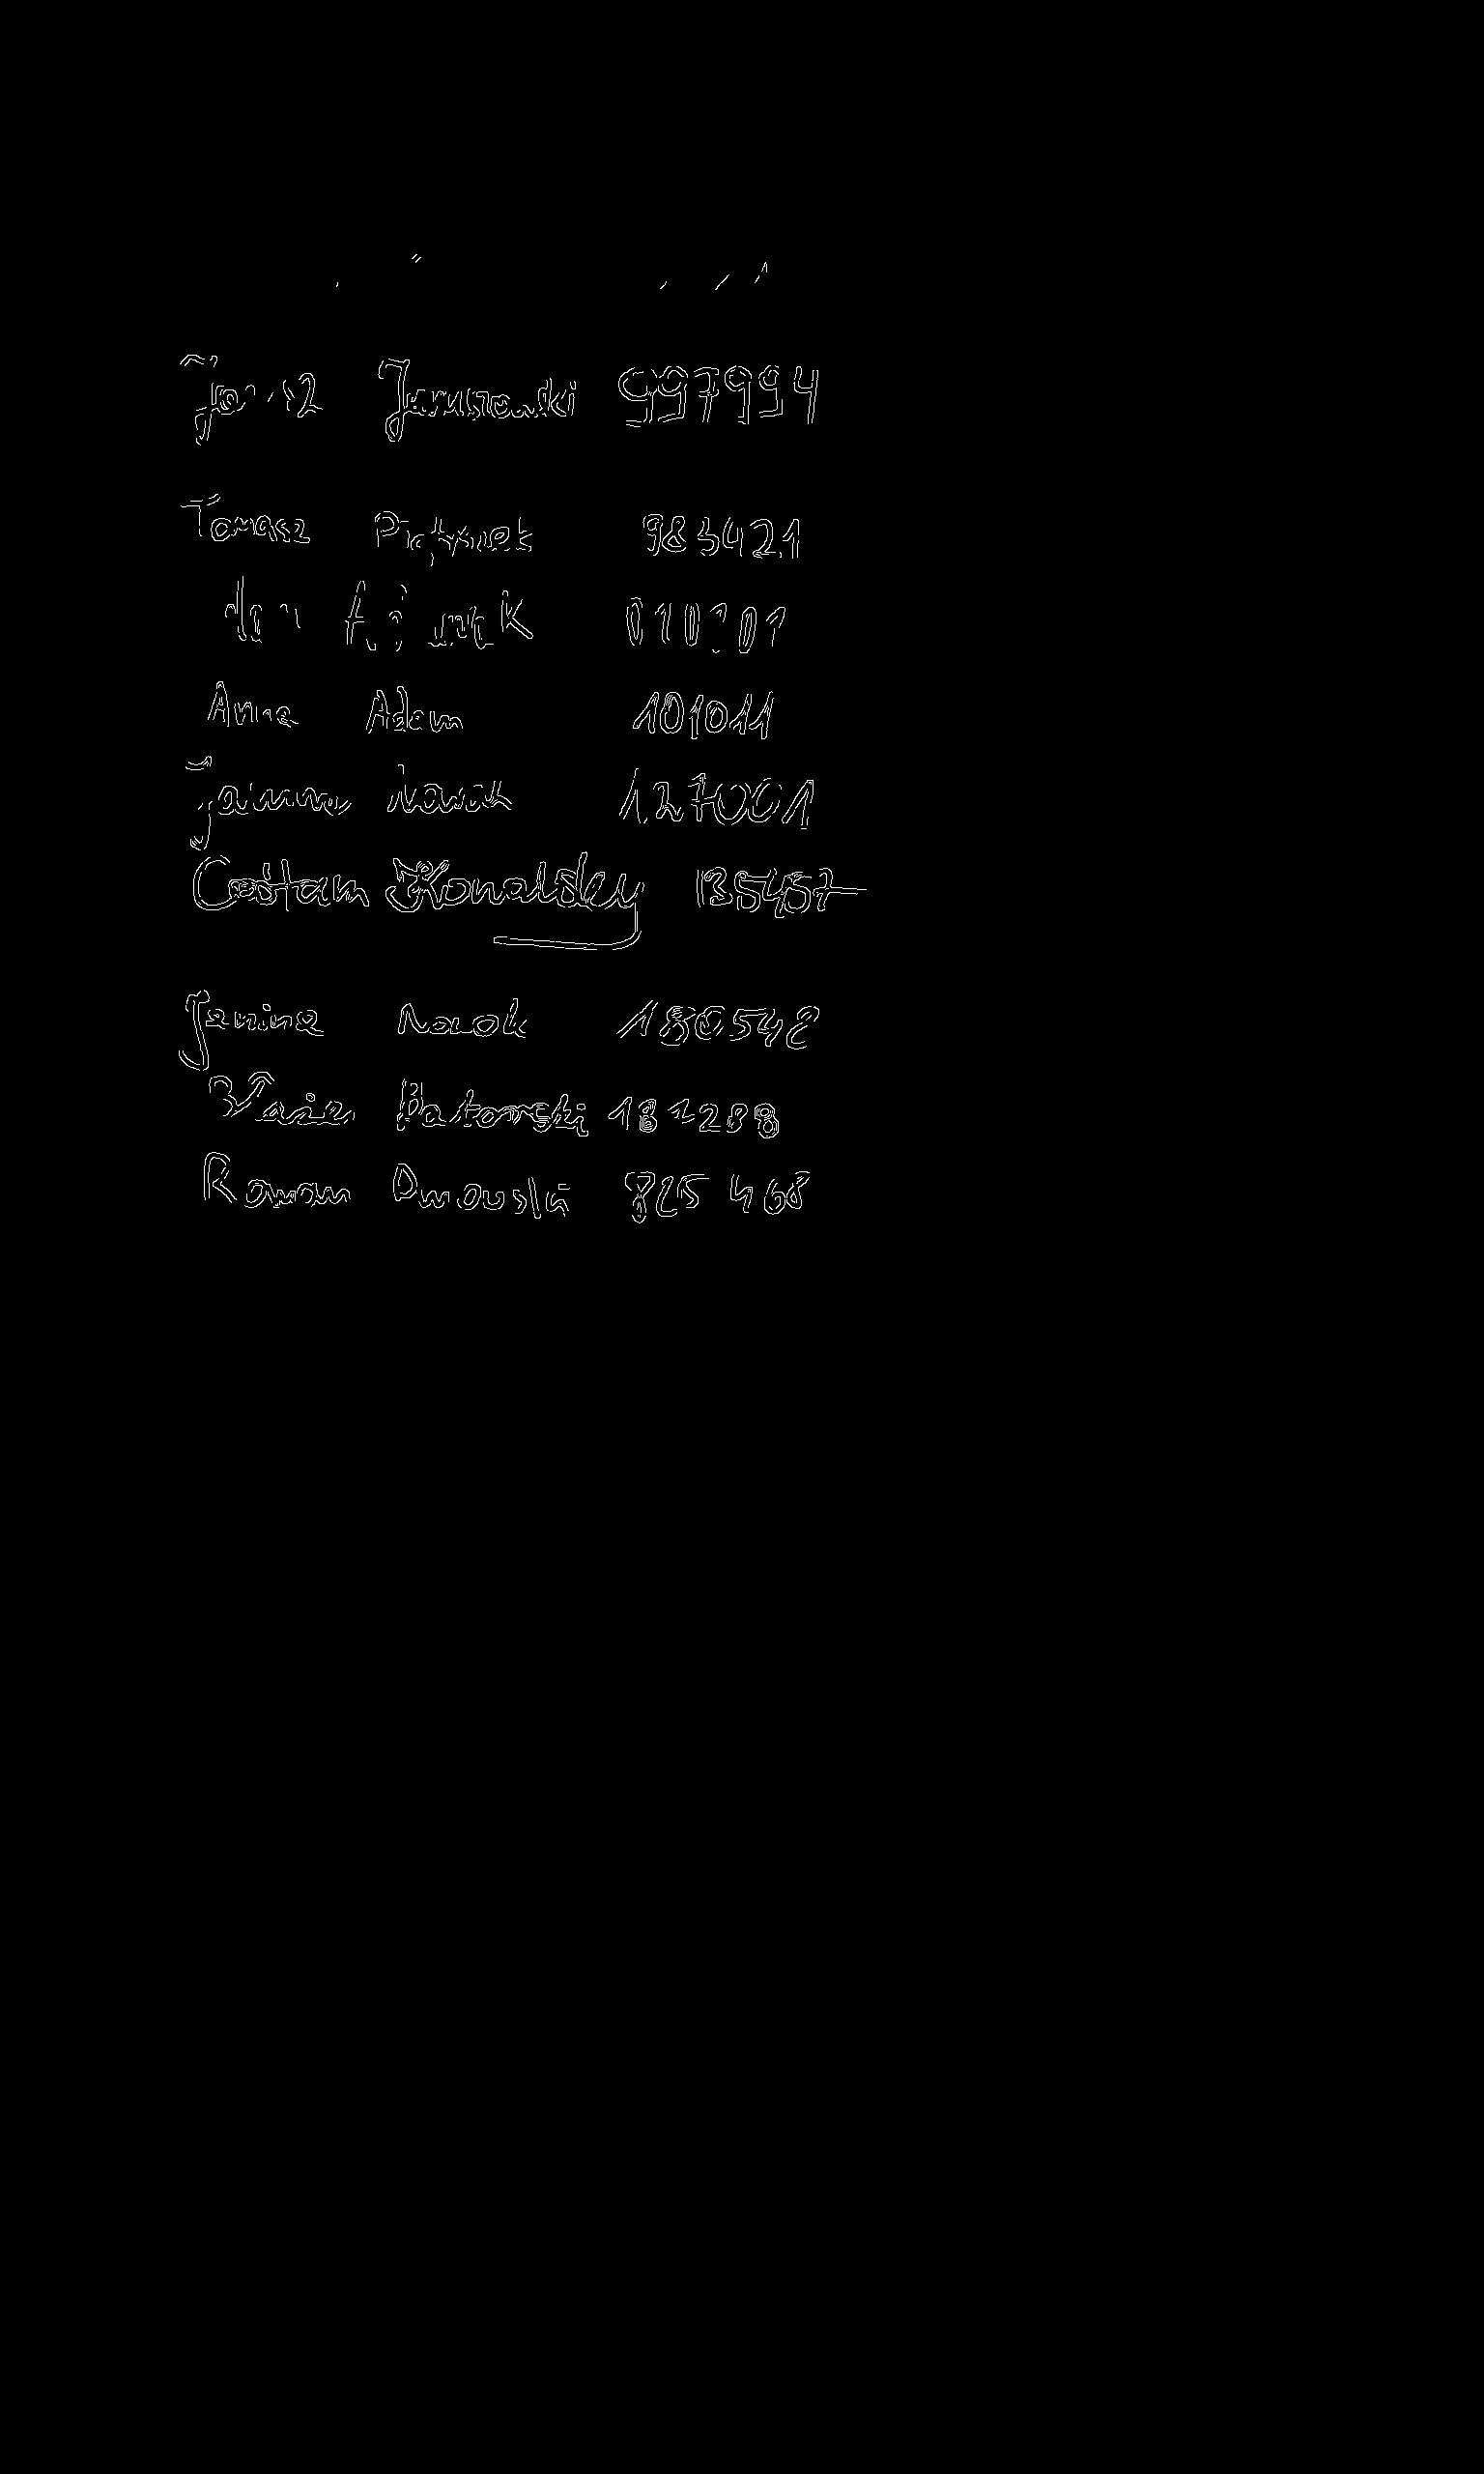 Janusz Januszowski 997994
Tomasz Piątynek 983421
Jan 010701
Anna Adam 101011
Janina Nowak 127001
Cośtam Konalsky 135457
Janina Nowak 180542
Błażej Batorski 181288
Roman Dmowski 825468